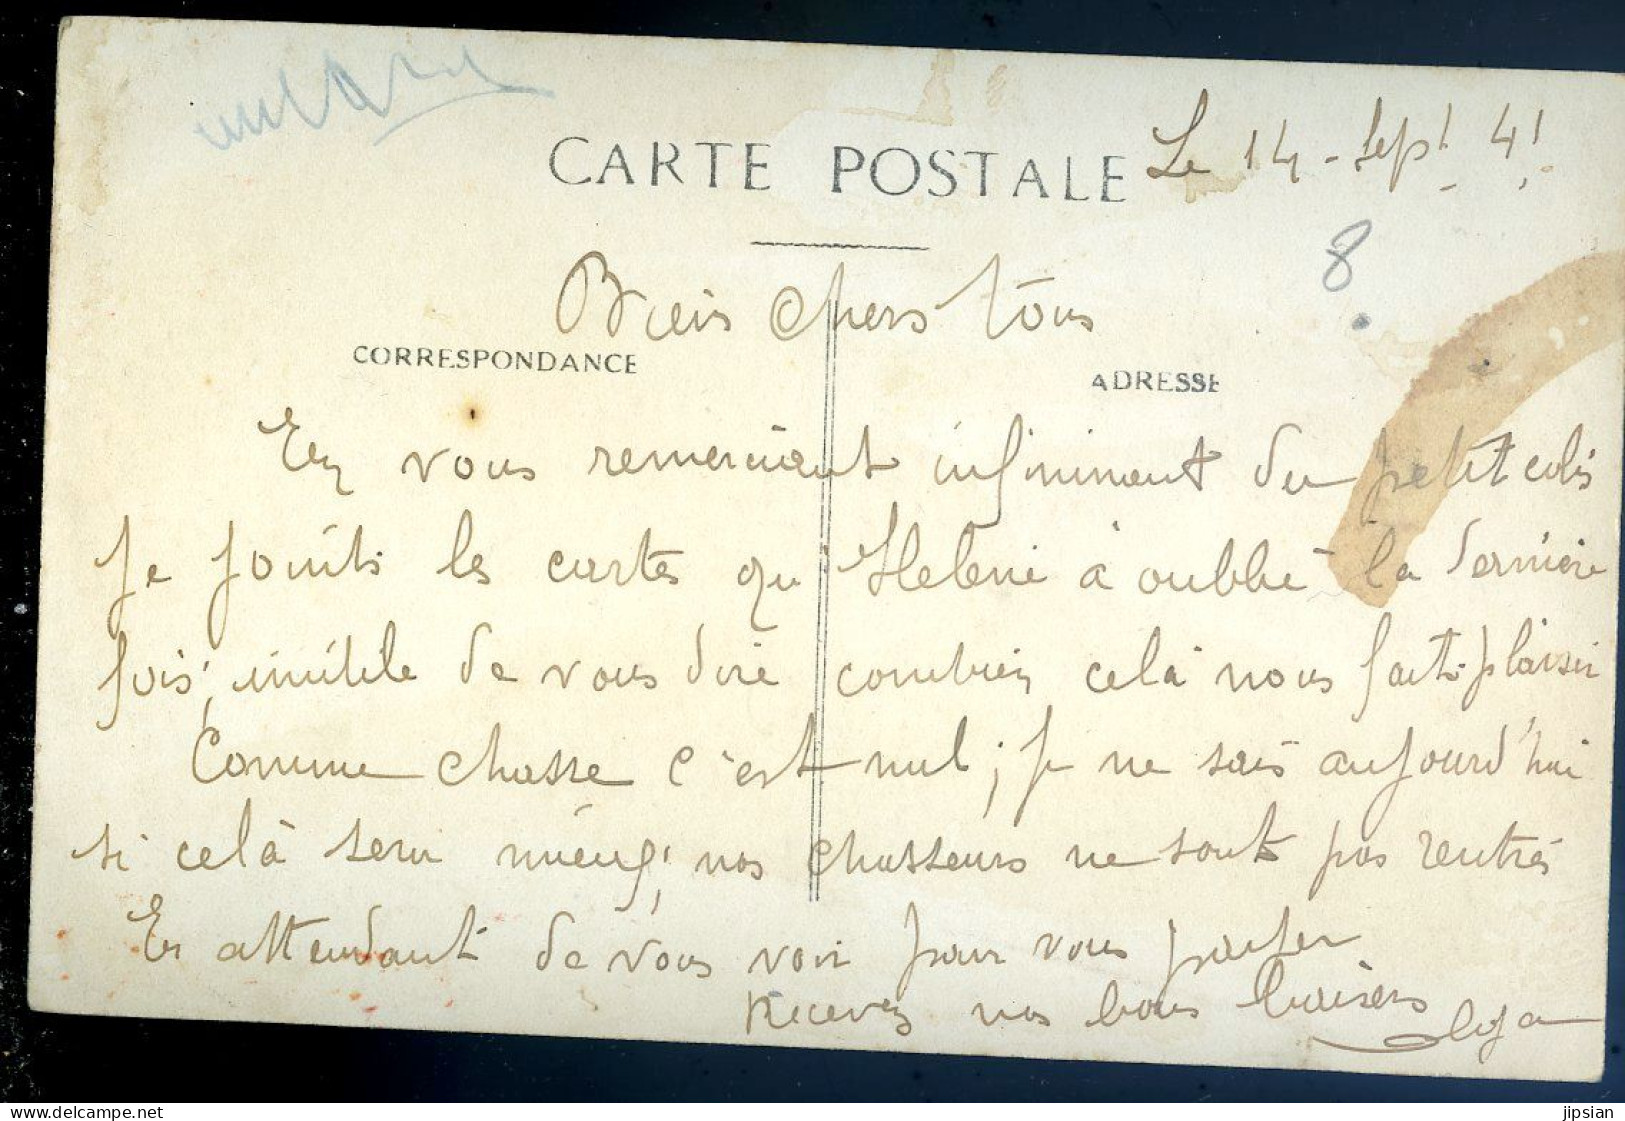 CARTE POSTALE
Le 14 - Sept. 41.
8
Bien chers tous
CORRESPONDANCE
ADRESSE
En vous remerciant infiniment du petit colis
Je joints les cartes qu'Helene à oublié la dernière
fois, inutile de vous dire combien celà nous fait plaisir
Comme chasse c'est nul; je ne sais aujourd'hui
si celà sera mieux, nos chasseurs ne sont pas rentrés
En attendant de vous voir pour vous parler
Recevez nos bons baisers
delcampe.net
jipsian